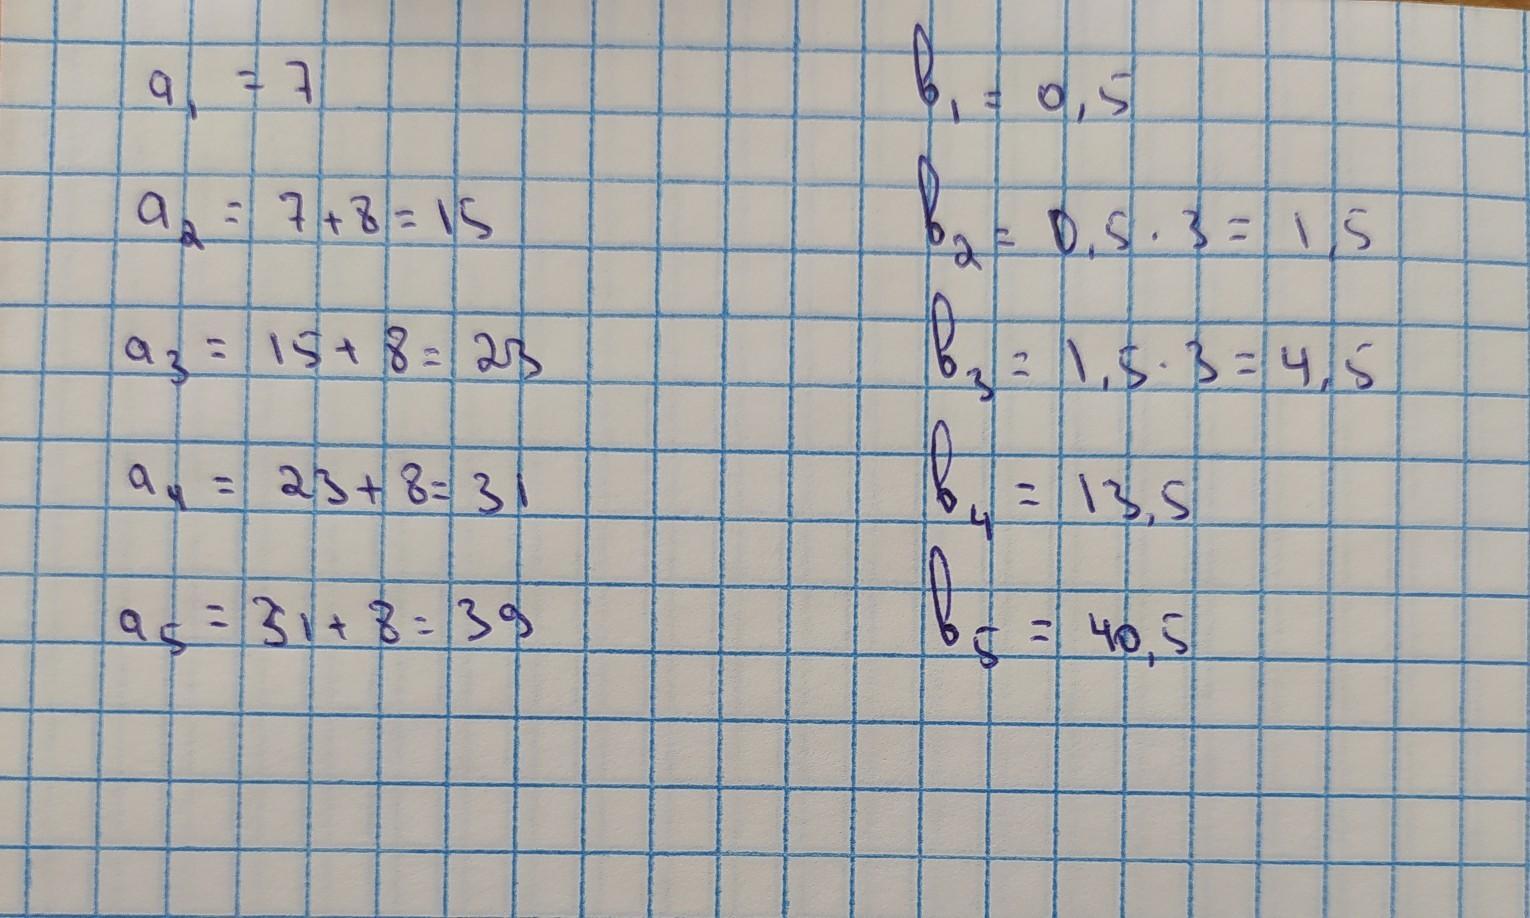 a₁ = 7
a₂ = 7+8=15
a₃ = 15+8=23
a₄ = 23+8=31
a₅ = 31+8=39
b₁ = 0,5
b₂ = 0,5·3= 1,5
b₃ = 1,5·3=4,5
b₄ = 13,5
b₅ = 40,5